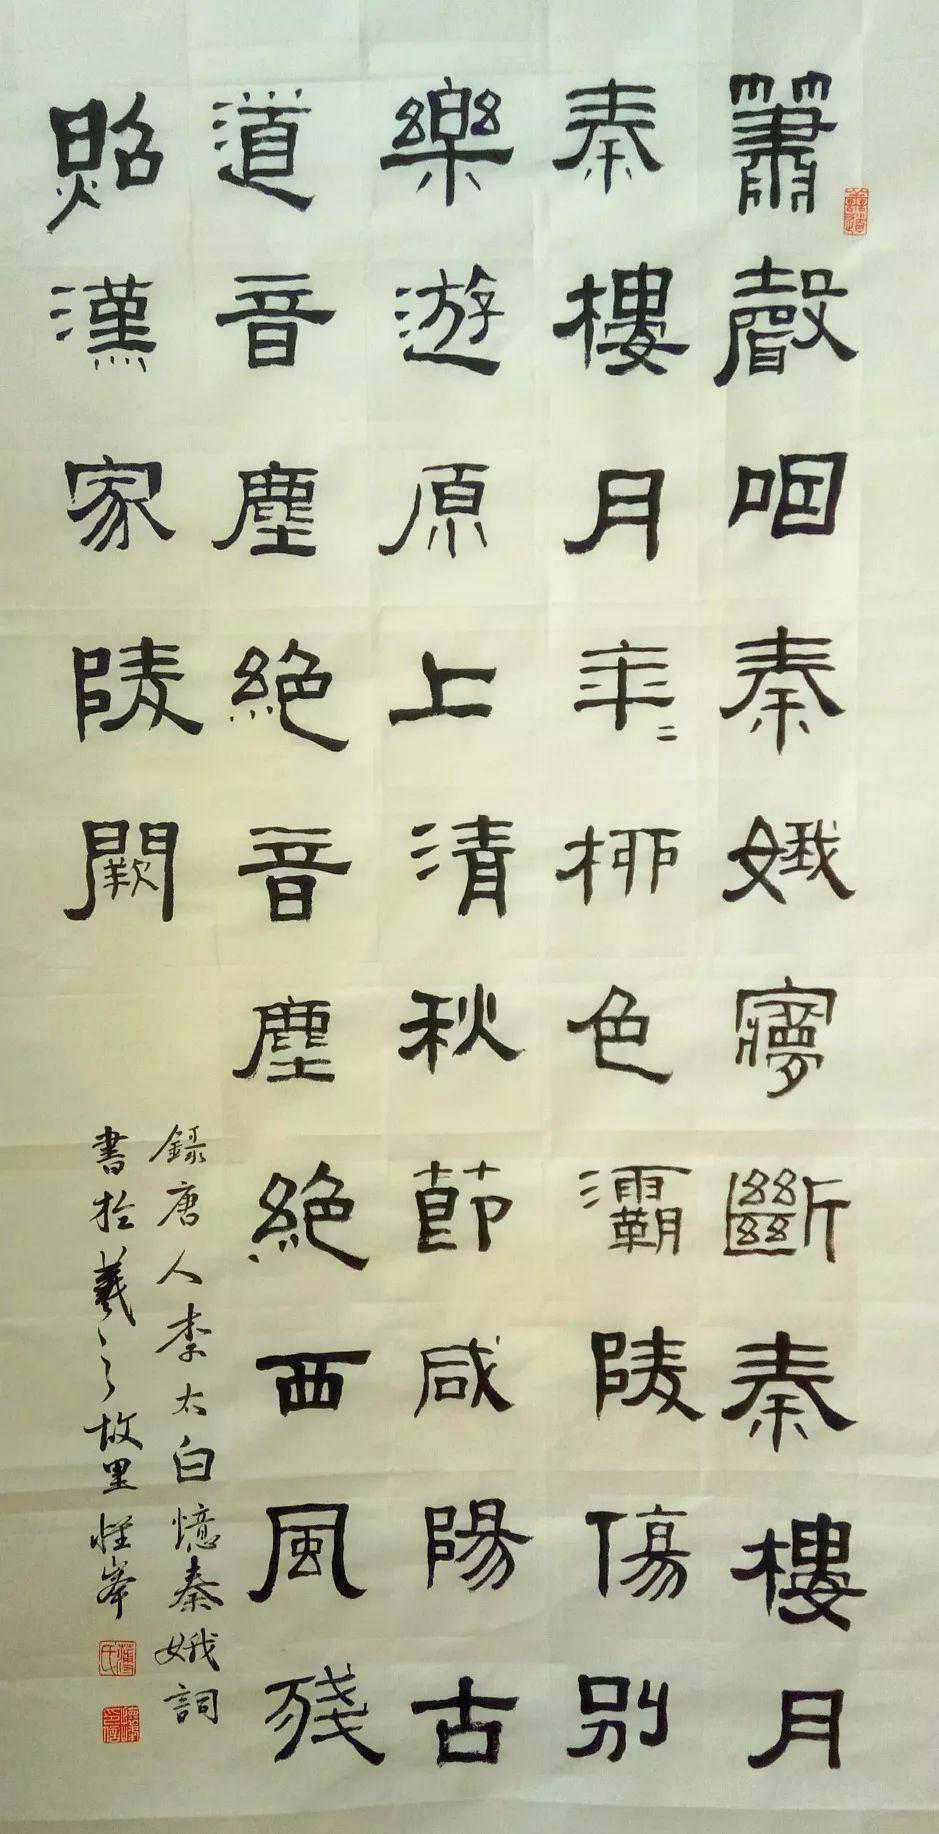 簫聲咽秦娥夢斷秦樓月
秦樓月年〻柳色灞陵傷別
樂遊原上清秋節咸陽古
道音塵絕音塵絕西風殘
照漢家陵闕
錄唐人李太白憶秦娥詞
書於羲之故里峯